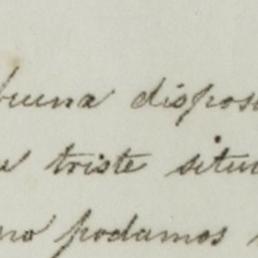 buena dispos
triste situ
no podamos